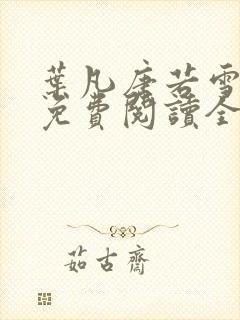 葉凡唐若雪
免費閱讀全
茹古齋